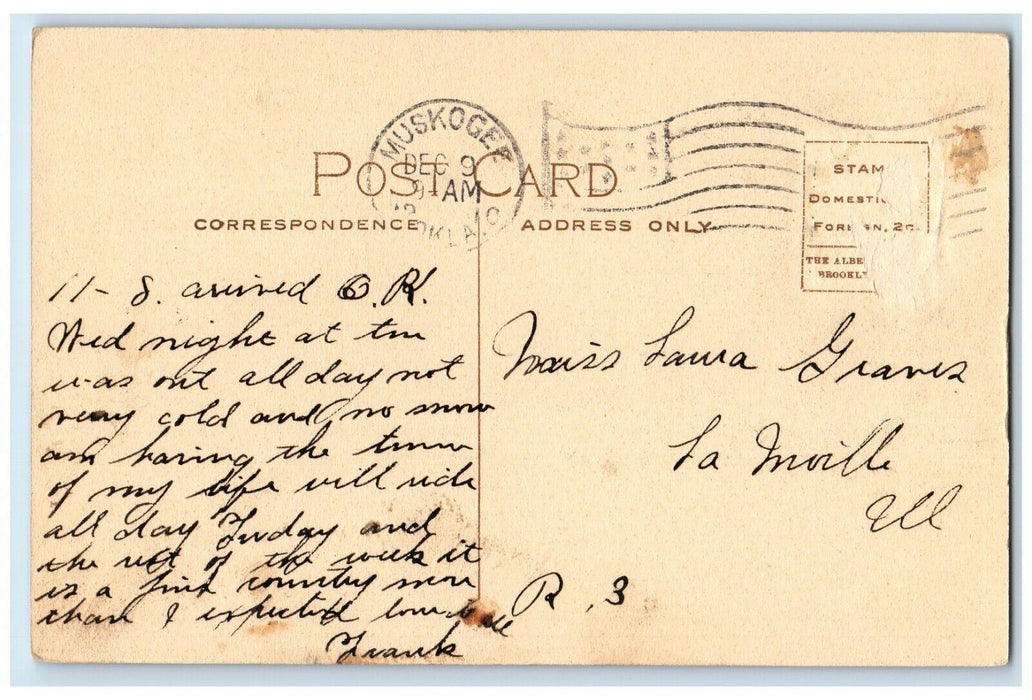 MUSKOGEE
DEC 9
9 AM
OKLA.
POST CARD
CORRESPONDENCE
ADDRESS ONLY
STAM
DOMESTIC
FOREIGN, 2c.
THE ALBE
BROOKLY
11- 8. arrived O.K.
Wed night at ten
was out all day not
very cold and no snow
am having the time
of my life will ride
all day Friday and
the rest of the week it
is a fine country more
than I expected love to all
Frank
Miss Laura Graves
La Moille
Ill
R.3